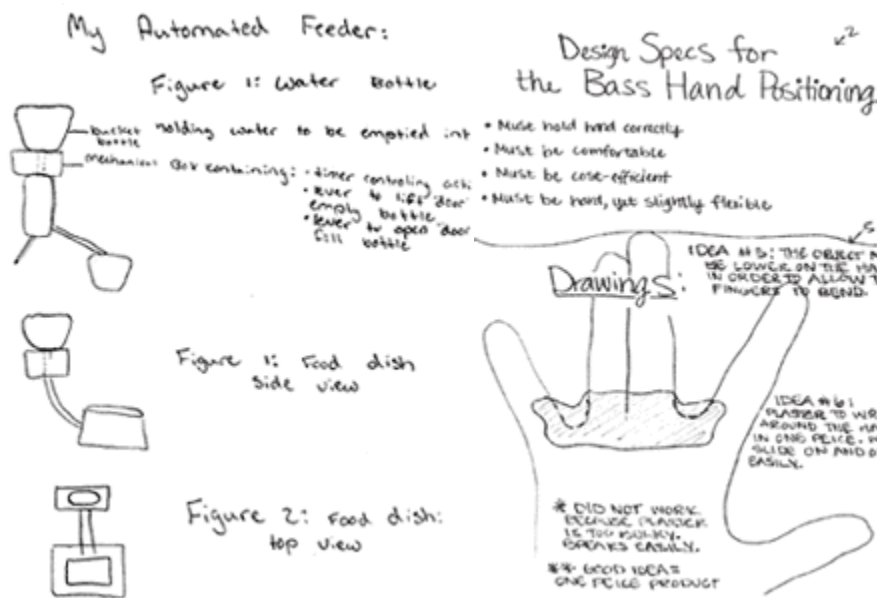 My Automated Feeder:
Figure 1: Water Bottle
bucket holding water to be emptied int
bottle
mechanical Box containing: • timer controling acti
• lever to lift door
empty bottle
• lever to open door
fill bottle
Figure 1: Food dish
side view
Figure 2: Food dish:
top view
2
Design Specs for
the Bass Hand Positioning
• Must hold hand correctly
• Must be comfortable
• Must be cost-efficient
• Must be hard, yet slightly flexible
5
Drawings:
IDEA #5: THE OBJECT M
BE LOWER ON THE HA
IN ORDER TO ALLOW T
FINGERS TO BEND.
IDEA #6:
PLASTER TO WR
AROUND THE HA
IN ONE PEICE.
SLIDE ON AND O
EASILY.
* DID NOT WORK
BECAUSE PLASTER
IS TOO BULKY.
BREAKS EASILY.
** GOOD IDEA =
ONE PEICE PRODUCT